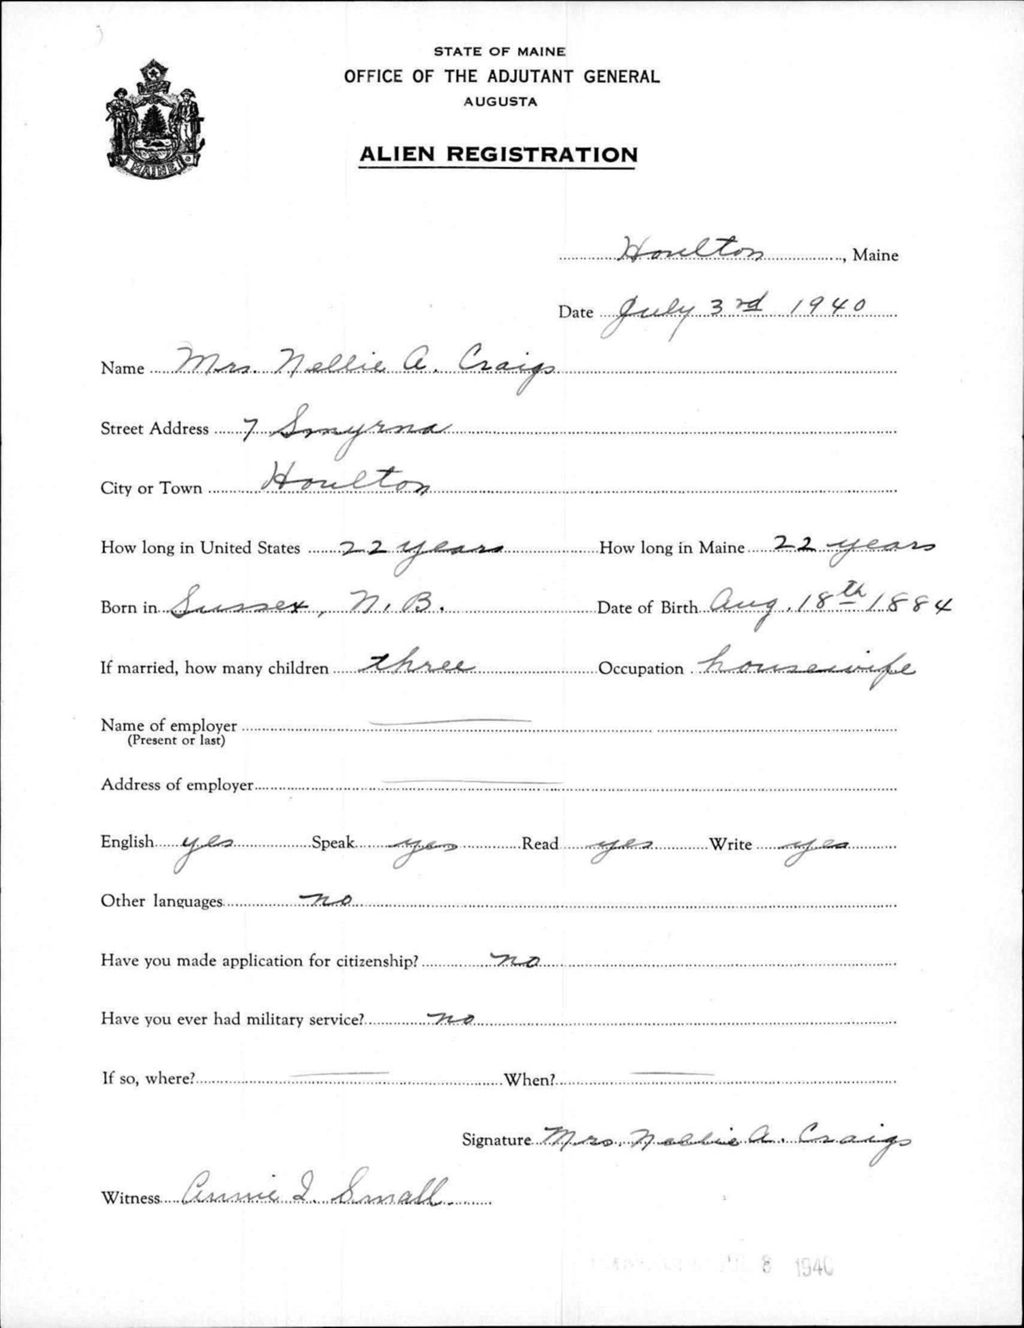 STATE OF MAINE
OFFICE OF THE ADJUTANT GENERAL
AUGUSTA
ALIEN REGISTRATION
MAINE
Houlton, Maine
Date July 3rd 1940
Name Mrs. Nellie A. Craig
Street Address 7 Smyrna
City or Town Houlton
How long in United States 22 years How long in Maine 22 years
Born in Sussex, N.B. Date of Birth Aug. 18th 1884
If married, how many children three Occupation housewife
Name of employer
(Present or last)
Address of employer
English yes Speak yes Read yes Write yes
Other languages no
Have you made application for citizenship? no
Have you ever had military service? no
If so, where? When?
Signature Mrs. Nellie A. Craig
Witness Annie I. Small
8 1940